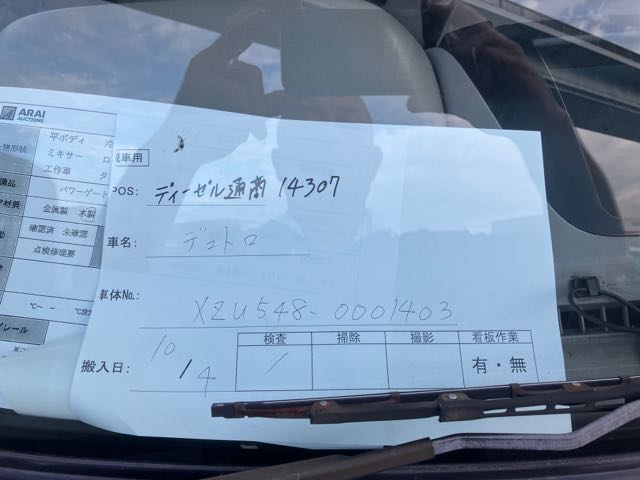 ARAI
AUCTIONS
平ボディ 冷
物形状 ミキサー ロ
工作車 タ
備品 パワーゲート
材質 金属製 木製
確認済 未確認
点検修理要
℃～ ℃
レール
車用
POS: ディーゼル通商 14307
車名: デュトロ
車体No.: XZU548-0001403
搬入日: 10/4
検査 掃除 撮影 看板作業
/ 有・無